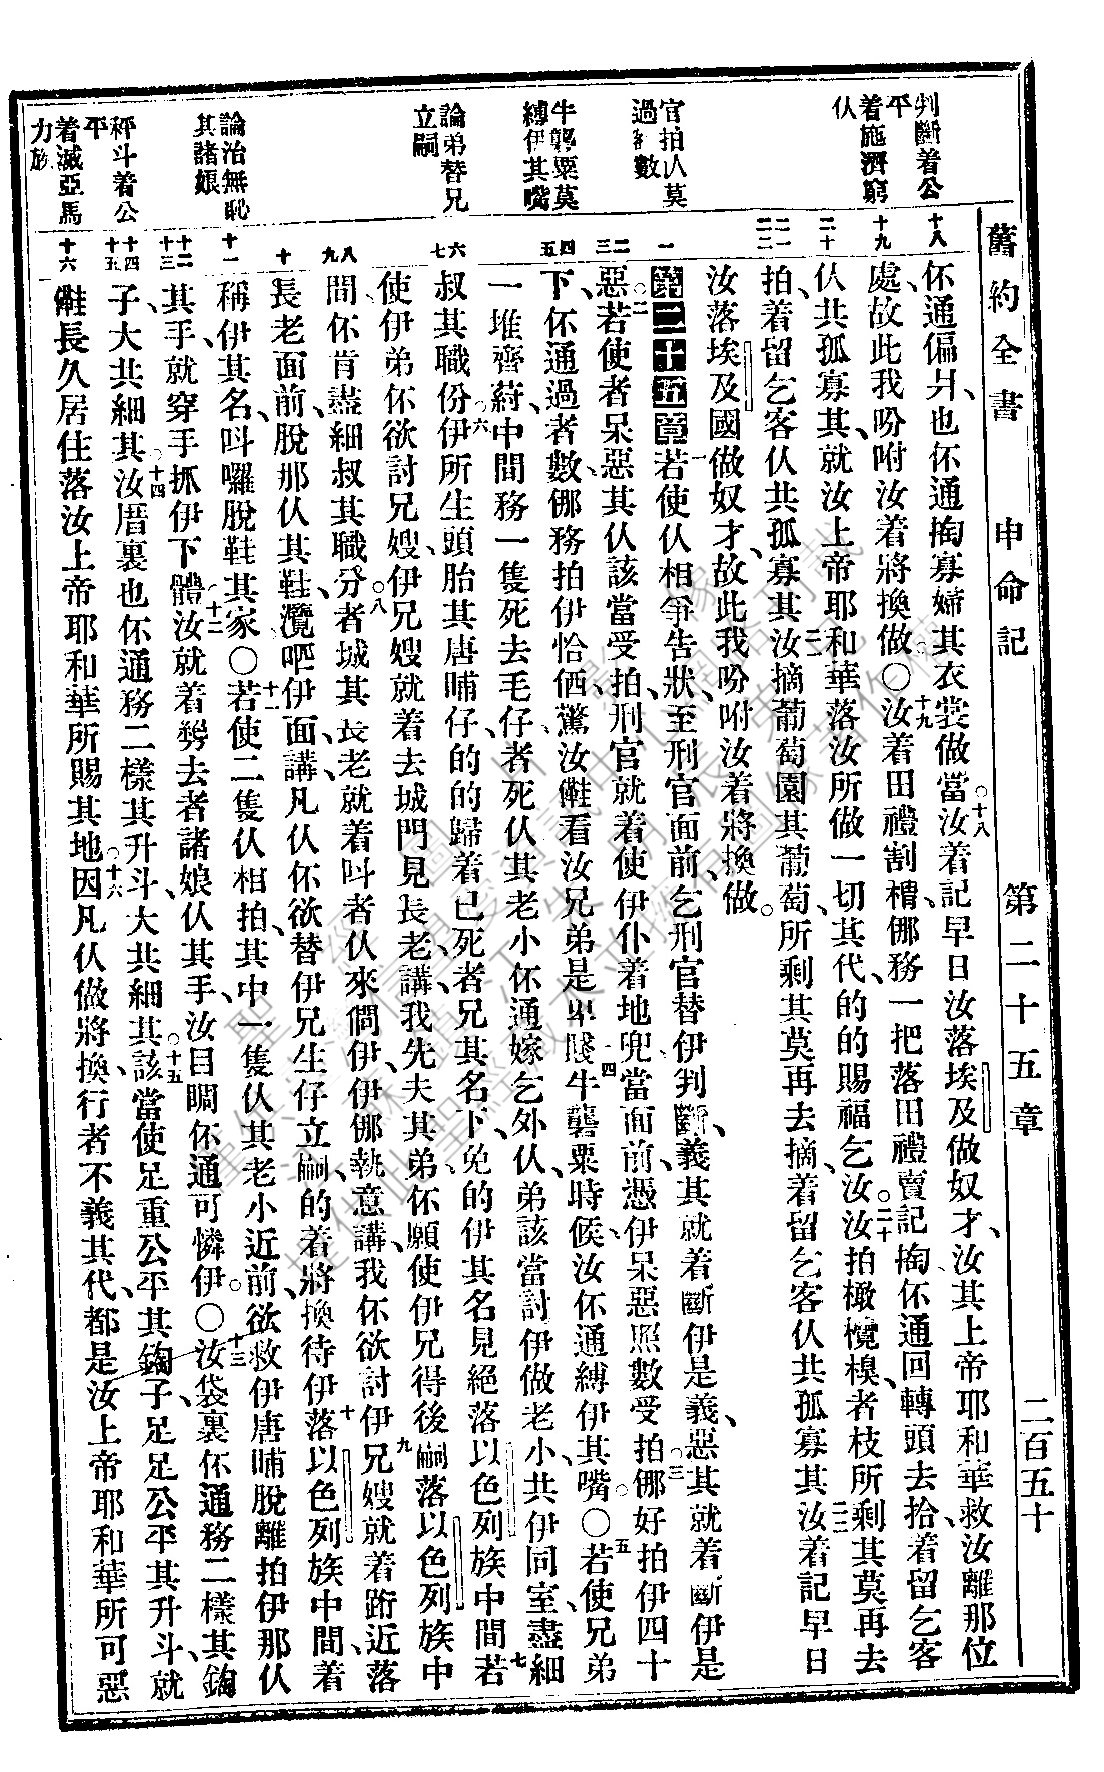 舊約全書　申命記　第二十五章　二百五十
判斷着公平
着施濟窮仈
官拍仈莫過額數
牛礱粟莫縛伊其嘴
論弟替兄立嗣
論治無恥其諸娘
秤斗着公平
着滅亞馬力族
十八
十九
二十
二一
二二
一
二
三
四
五
六
七
八
九
十
十一
十二
十三
十四
十五
十六
伓通偏爿、也伓通掏寡婦其衣裳做當、○十八汝着記早日汝落埃及做奴才、汝其上帝耶和華救汝離那位
處、故此我吩咐汝着將換做、○十九汝着田禮割䆀、㑚務一把落田禮賣記掏、伓通回轉頭去拾、着留乞客
仈共孤寡其、就汝上帝耶和華落汝所做一切其代、的的賜福乞汝、○二十汝拍橄欖樕、者枝所剩其莫再去
拍、着留乞客仈共孤寡其、二一汝摘葡萄園其葡萄、所剩其莫再去摘、着留乞客仈共孤寡其、二二汝着記早日
汝落埃及國做奴才、故此我吩咐汝着將換做。
第二十五章 一若使仈相爭告狀、至刑官面前、乞刑官替伊判斷、義其就着斷伊是義、惡其就着斷伊是
惡、○二若使者呆惡其仈該當受拍、刑官就着使伊仆着地兜、當面前憑伊呆惡照數受拍、○三㑚好拍伊四十
下、伓通過者數、㑚務拍伊恰價、驚汝䧹看汝兄弟是卑賤、四牛礱粟時候、汝伓通縛伊其嘴、○五若使兄弟
一堆齊䔟、中間務一隻死去毛仔、者死仈其老小伓通嫁乞外仈、弟該當討伊做老小、共伊同室、盡細
叔其職份、○六伊所生頭胎其唐晡仔、的的歸着已死者兄其名下、免的伊其名見絕落以色列族中間、七若
使伊弟伓欲討兄嫂、伊兄嫂就着去城門見長老講、我先夫其弟、伓願使伊兄得後嗣落以色列族中
間、伓肯盡細叔其職分、○八者城其長老就着呌者仈來㑚伊、伊㑚執意講、我伓欲討伊、九兄嫂就着跡近落
長老面前、脫那仈其鞋、瀺吧伊面、講、凡仈伓欲替伊兄生仔立嗣的、着將換待伊、十落以色列族中間、着
稱伊其名、呌囉脫鞋其家、○十一若使二隻仈相拍、其中一隻仈其老小近前、欲救伊唐晡脫離拍伊那仈
其手、就穿手抓伊下體、○十二汝就着剺去者諸娘仈其手、汝目睭伓通可憐伊、○十三汝袋裏伓通務二樣其鋾
子、大共細其、○十四汝厝裏也伓通務二樣其升斗、大共細其、○十五該當使足重公平其鋾子、足足公平其升斗、就
䧹長久居住落汝上帝耶和華所賜其地、○十六因凡仈做將換行者不義其代、都是汝上帝耶和華所可惡